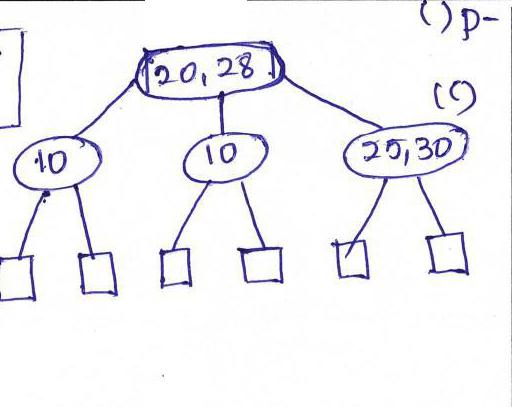 ( ) p-
20, 28
(c)
10
10
25, 30